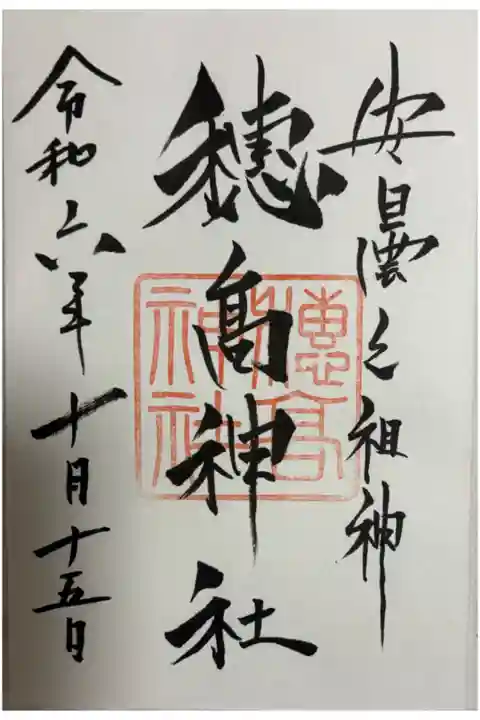 安曇之祖神
穂髙神社
令和六年十月十五日
穂高
神社